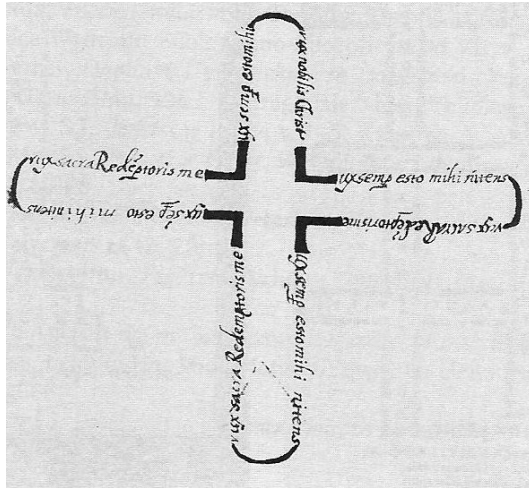 ux semꝑ esto mihi
rux nobilis Christ
rux sacra Redēptoris me
ux semꝑ esto mihi nitens
ux sēꝑ esto mihi nitens
rux sacra Redēptoris me
rux sacra Redemptoris me
ux semꝑ esto mihi nitens